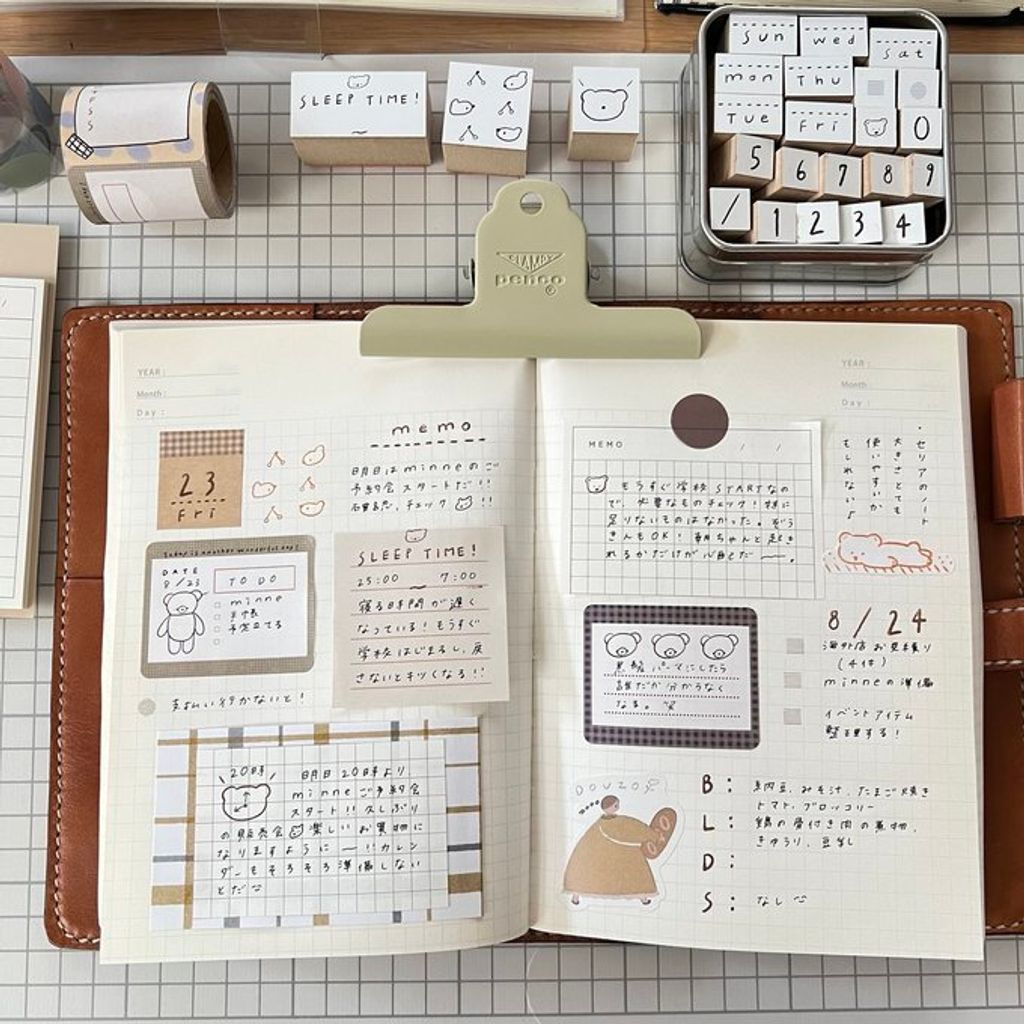 SLEEP TIME!
sun
wed
sat
mon
Thu
Tue
Fri
0
5
6
7
8
9
/
1
2
3
4
CLAMPY
penco®
YEAR :
Month :
Day :
23
Fri
memo
明日はminneのご
予約会スタートだ!!
チェック!!
today is another wonderful day!
DATE
8/23
TO DO
minne
手帳
予定立てる
SLEEP TIME!
25:00 ~ 7:00
寝る時間が遅く
なっている!もうすぐ
学校はじまるし、戻
さないとキツくなる!!
支払い行かないと!
20時
明日20時より
minneご予約会
スタート!!久しぶり
の販売会 楽しいお買物に
なりますように ー!!カレン
ダーもそろそろ準備しない
とだ
MEMO / /
もうすぐ学校STARTなの
で、必要なものチェック!特に
足りないものはなかった。ぞう
きんもOK!朝ちゃんと起き
れるかだけが心配だ ー。
YEAR :
Month :
Day :
・セリアのノート
大きさとても
使いやすいか
もしれない♪
8/24
海外店お見積り
(4件)
minneの準備
イベントアイテム
整理する!
黒髪パーマにしたら
誰だか分からなく
なる。笑
DOUZO
B : 納豆、みそ汁、たまご焼き
トマト、ブロッコリー
L : 鶏の骨付き肉の煮物、
きゅうり、豆乳
D :
S : なし